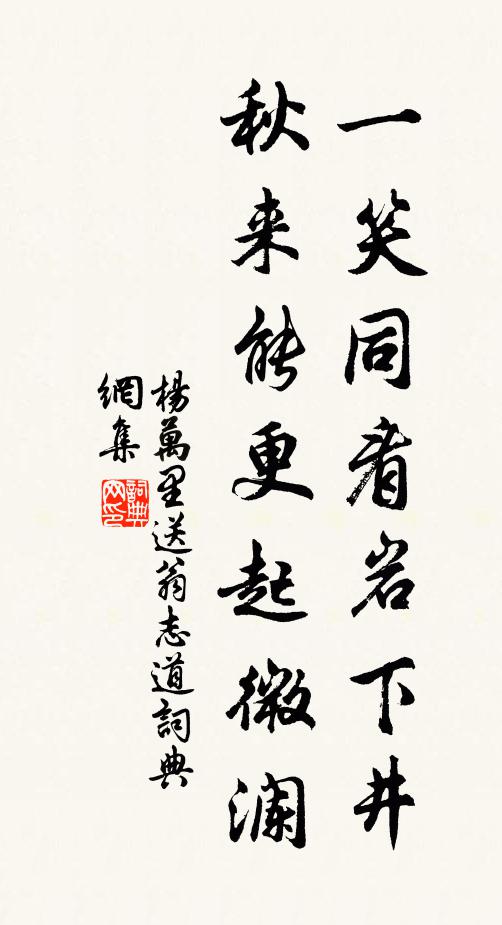 一笑同看岩下井
秋来能更起微澜
楊萬里送翁志道詞典
網集
詞典
网印